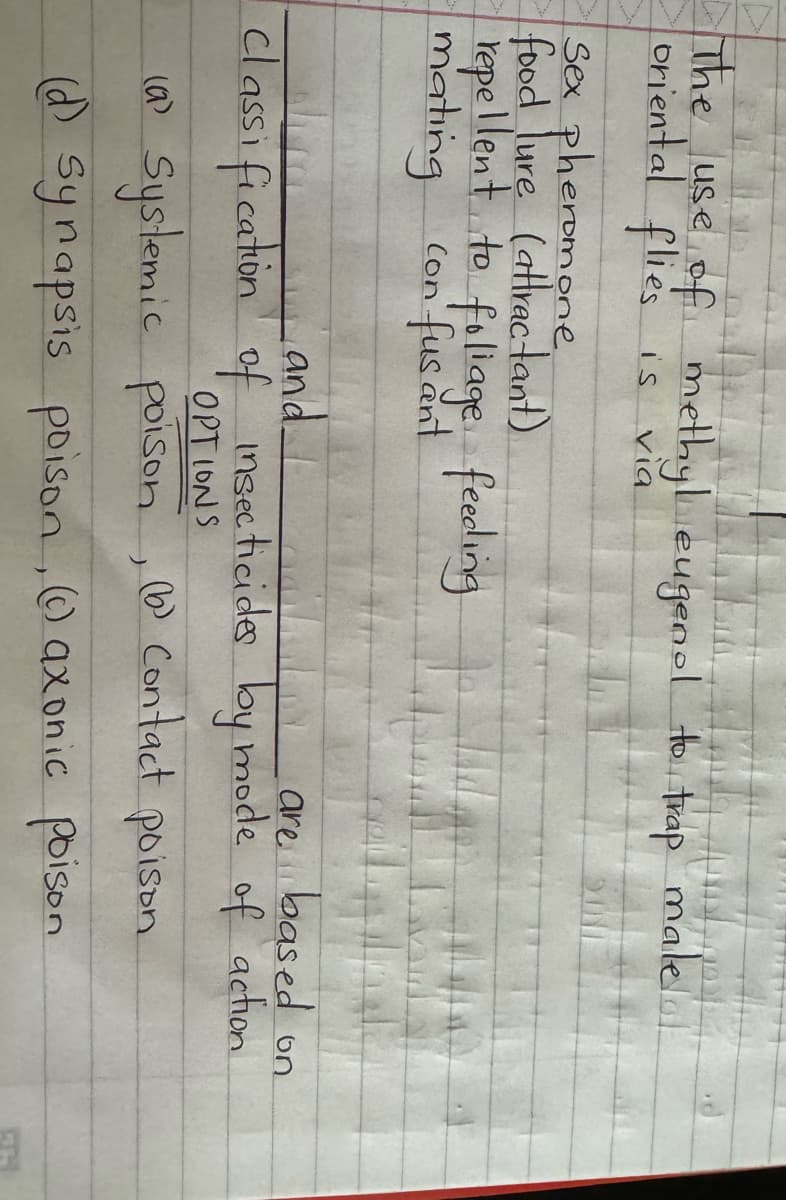 The use of methyl eugenol to trap male
oriental flies is via
Sex pheromone
food lure (attractant)
repellent to foliage feeding
mating confusant
and are based on
classification of insecticides by mode of action
OPTIONS
(a) Systemic poison, (b) Contact poison
(d) Synapsis poison, (c) axonic poison